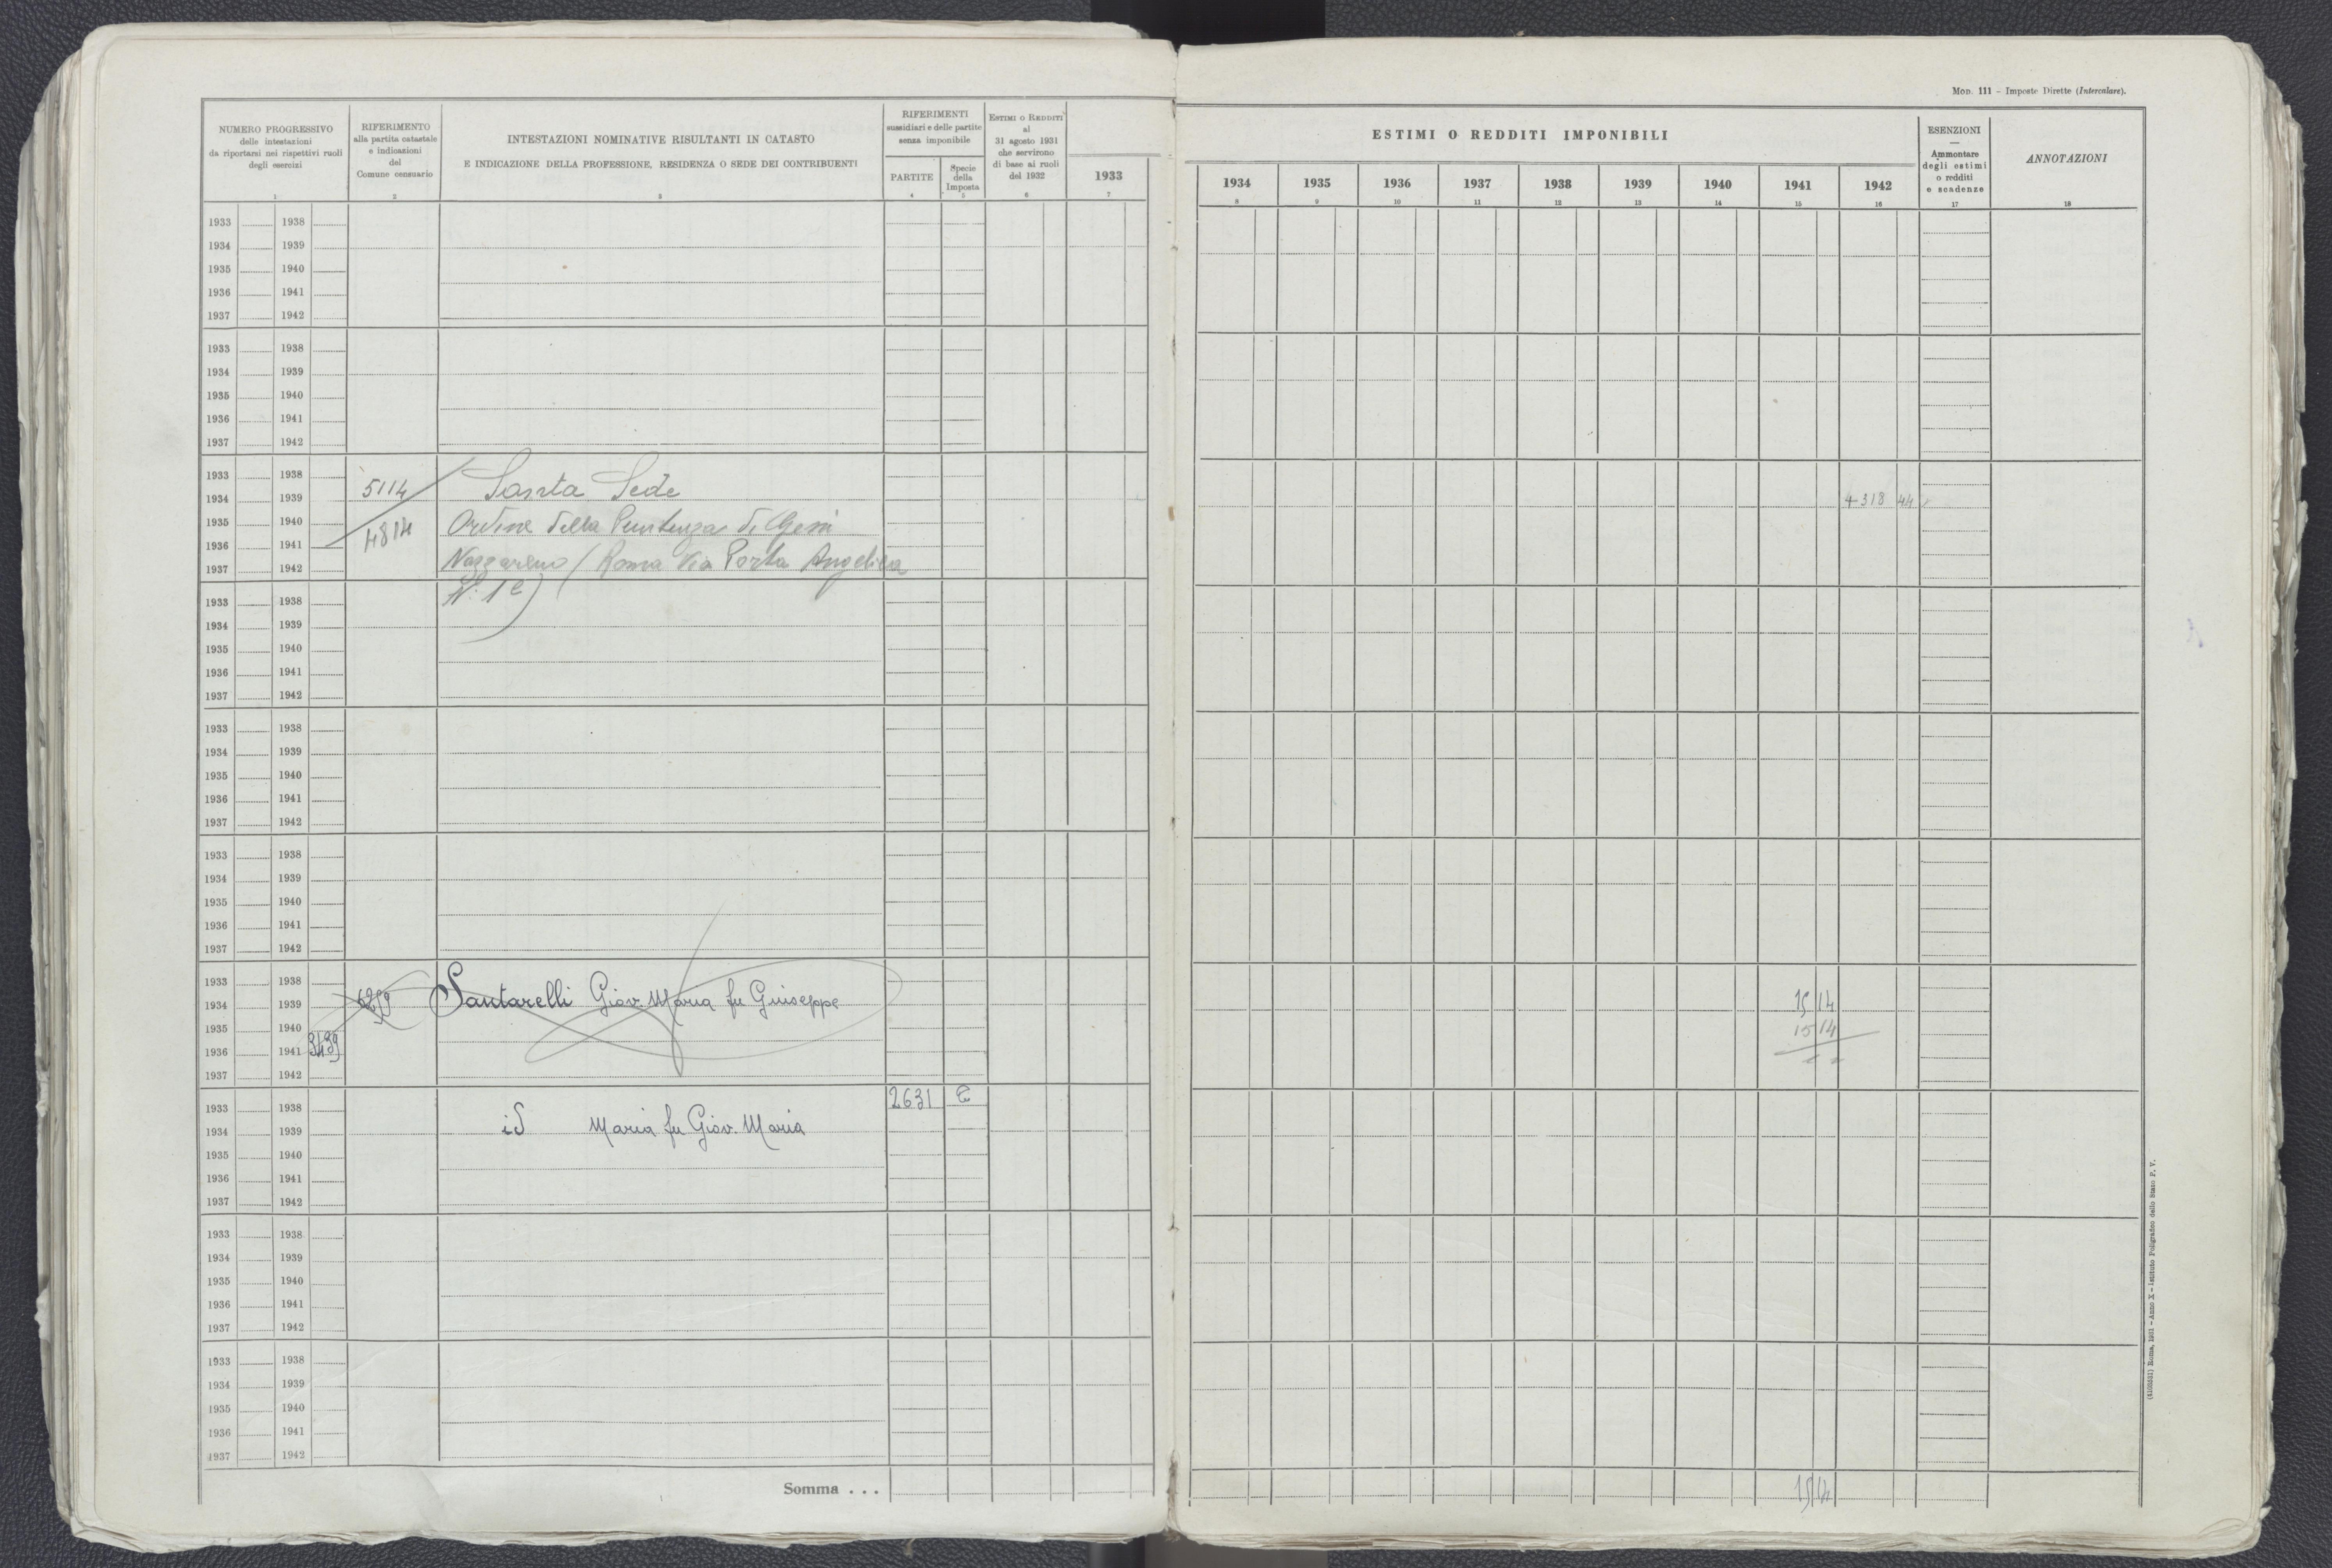 Mod. 111 - Imposte Dirette (Intercalare).
NUMERO PROGRESSIVO
delle intestazioni
da riportarsi nei rispettivi ruoli
degli esercizi
1
RIFERIMENTO
alla partita catastale
e indicazioni
del
Comune censuario
2
INTESTAZIONI NOMINATIVE RISULTANTI IN CATASTO
E INDICAZIONE DELLA PROFESSIONE, RESIDENZA O SEDE DEI CONTRIBUENTI
3
RIFERIMENTI
sussidiari e delle partite
senza imponibile
PARTITE
4
Specie
della
Imposta
5
ESTIMI O REDDITI
al
31 agosto 1931
che servirono
di base ai ruoli
del 1932
6
1933
7
ESTIMI O REDDITI IMPONIBILI
1934 1935 1936 1937 1938 1939 1940 1941 1942
8 9 10 11 12 13 14 15 16
ESENZIONI
Ammontare
degli estimi
o redditi
e scadenze
17
ANNOTAZIONI
18
1933 1938
1934 1939
1935 1940
1936 1941
1937 1942
1933 1938
1934 1939
1935 1940
1936 1941
1937 1942
1933 1938
1934 1939 5114 Santa Sede 4318 44
1935 1940 4814 Ordine della Penitenza di Gesù
1936 1941
1937 1942 Nazzareno (Roma Via Porta Angelica
N. 1 )
1933 1938
1934 1939
1935 1940
1936 1941
1937 1942
1933 1938
1934 1939
1935 1940
1936 1941
1937 1942
1933 1938
1934 1939
1935 1940
1936 1941
1937 1942
1933 1938
1934 1939 Santarelli Giov. Maria fu Giuseppe 15 14
1935 1940 15 14
1936 1941 3439
1937 1942
1933 1938 2631
1934 1939 id Maria fu Giov. Maria
1935 1940
1936 1941
1937 1942
1933 1938
1934 1939
1935 1940
1936 1941
1937 1942
1933 1938
1934 1939
1935 1940
1936 1941
1937 1942
Somma . . . 15 14
Roma, 1931 - Anno X - Istituto Poligrafico dello Stato P. V.